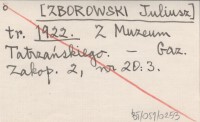 [ZBOROWSKI Juliusz]
tr. 1922. Z Muzeum
Tatrzańskiego. – Gaz.
Zakop. 2, nr 20: 3.